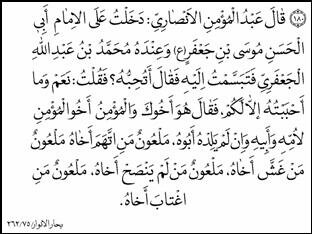 (١٨٠) قَالَ عَبْدُ الْمُؤْمِنِ الْأَنْصَارِيِّ: دَخَلْتُ عَلَى الْإِمَامِ أَبِي
الْحَسَنِ مُوسَى بْنِ جَعْفَرٍ(ع) وَعِنْدَهُ مُحَمَّدُ بْنُ عَبْدِ اللهِ
الْجَعْفَرِيِّ فَتَبَسَّمْتُ إِلَيْهِ فَقَالَ أَتُحِبُّهُ؟ فَقُلْتُ: نَعَمْ وَمَا
أَحْبَبْتُهُ إِلَّا لَكُمْ. فَقَالَ هُوَ أَخُوكَ وَالْمُؤْمِنُ أَخُو الْمُؤْمِنِ
لِأُمِّهِ وَأَبِيهِ وَإِنْ لَمْ يَلِدْهُ أَبُوهُ، مَلْعُونٌ مَنِ اتَّهَمَ أَخَاهُ مَلْعُونٌ
مَنْ غَشَّ أَخَاهُ، مَلْعُونٌ مَنْ لَمْ يَنْصَحْ أَخَاهُ، مَلْعُونٌ مَنِ
اغْتَابَ أَخَاهُ.
بحار الانوار ٢٦٢/٧٥